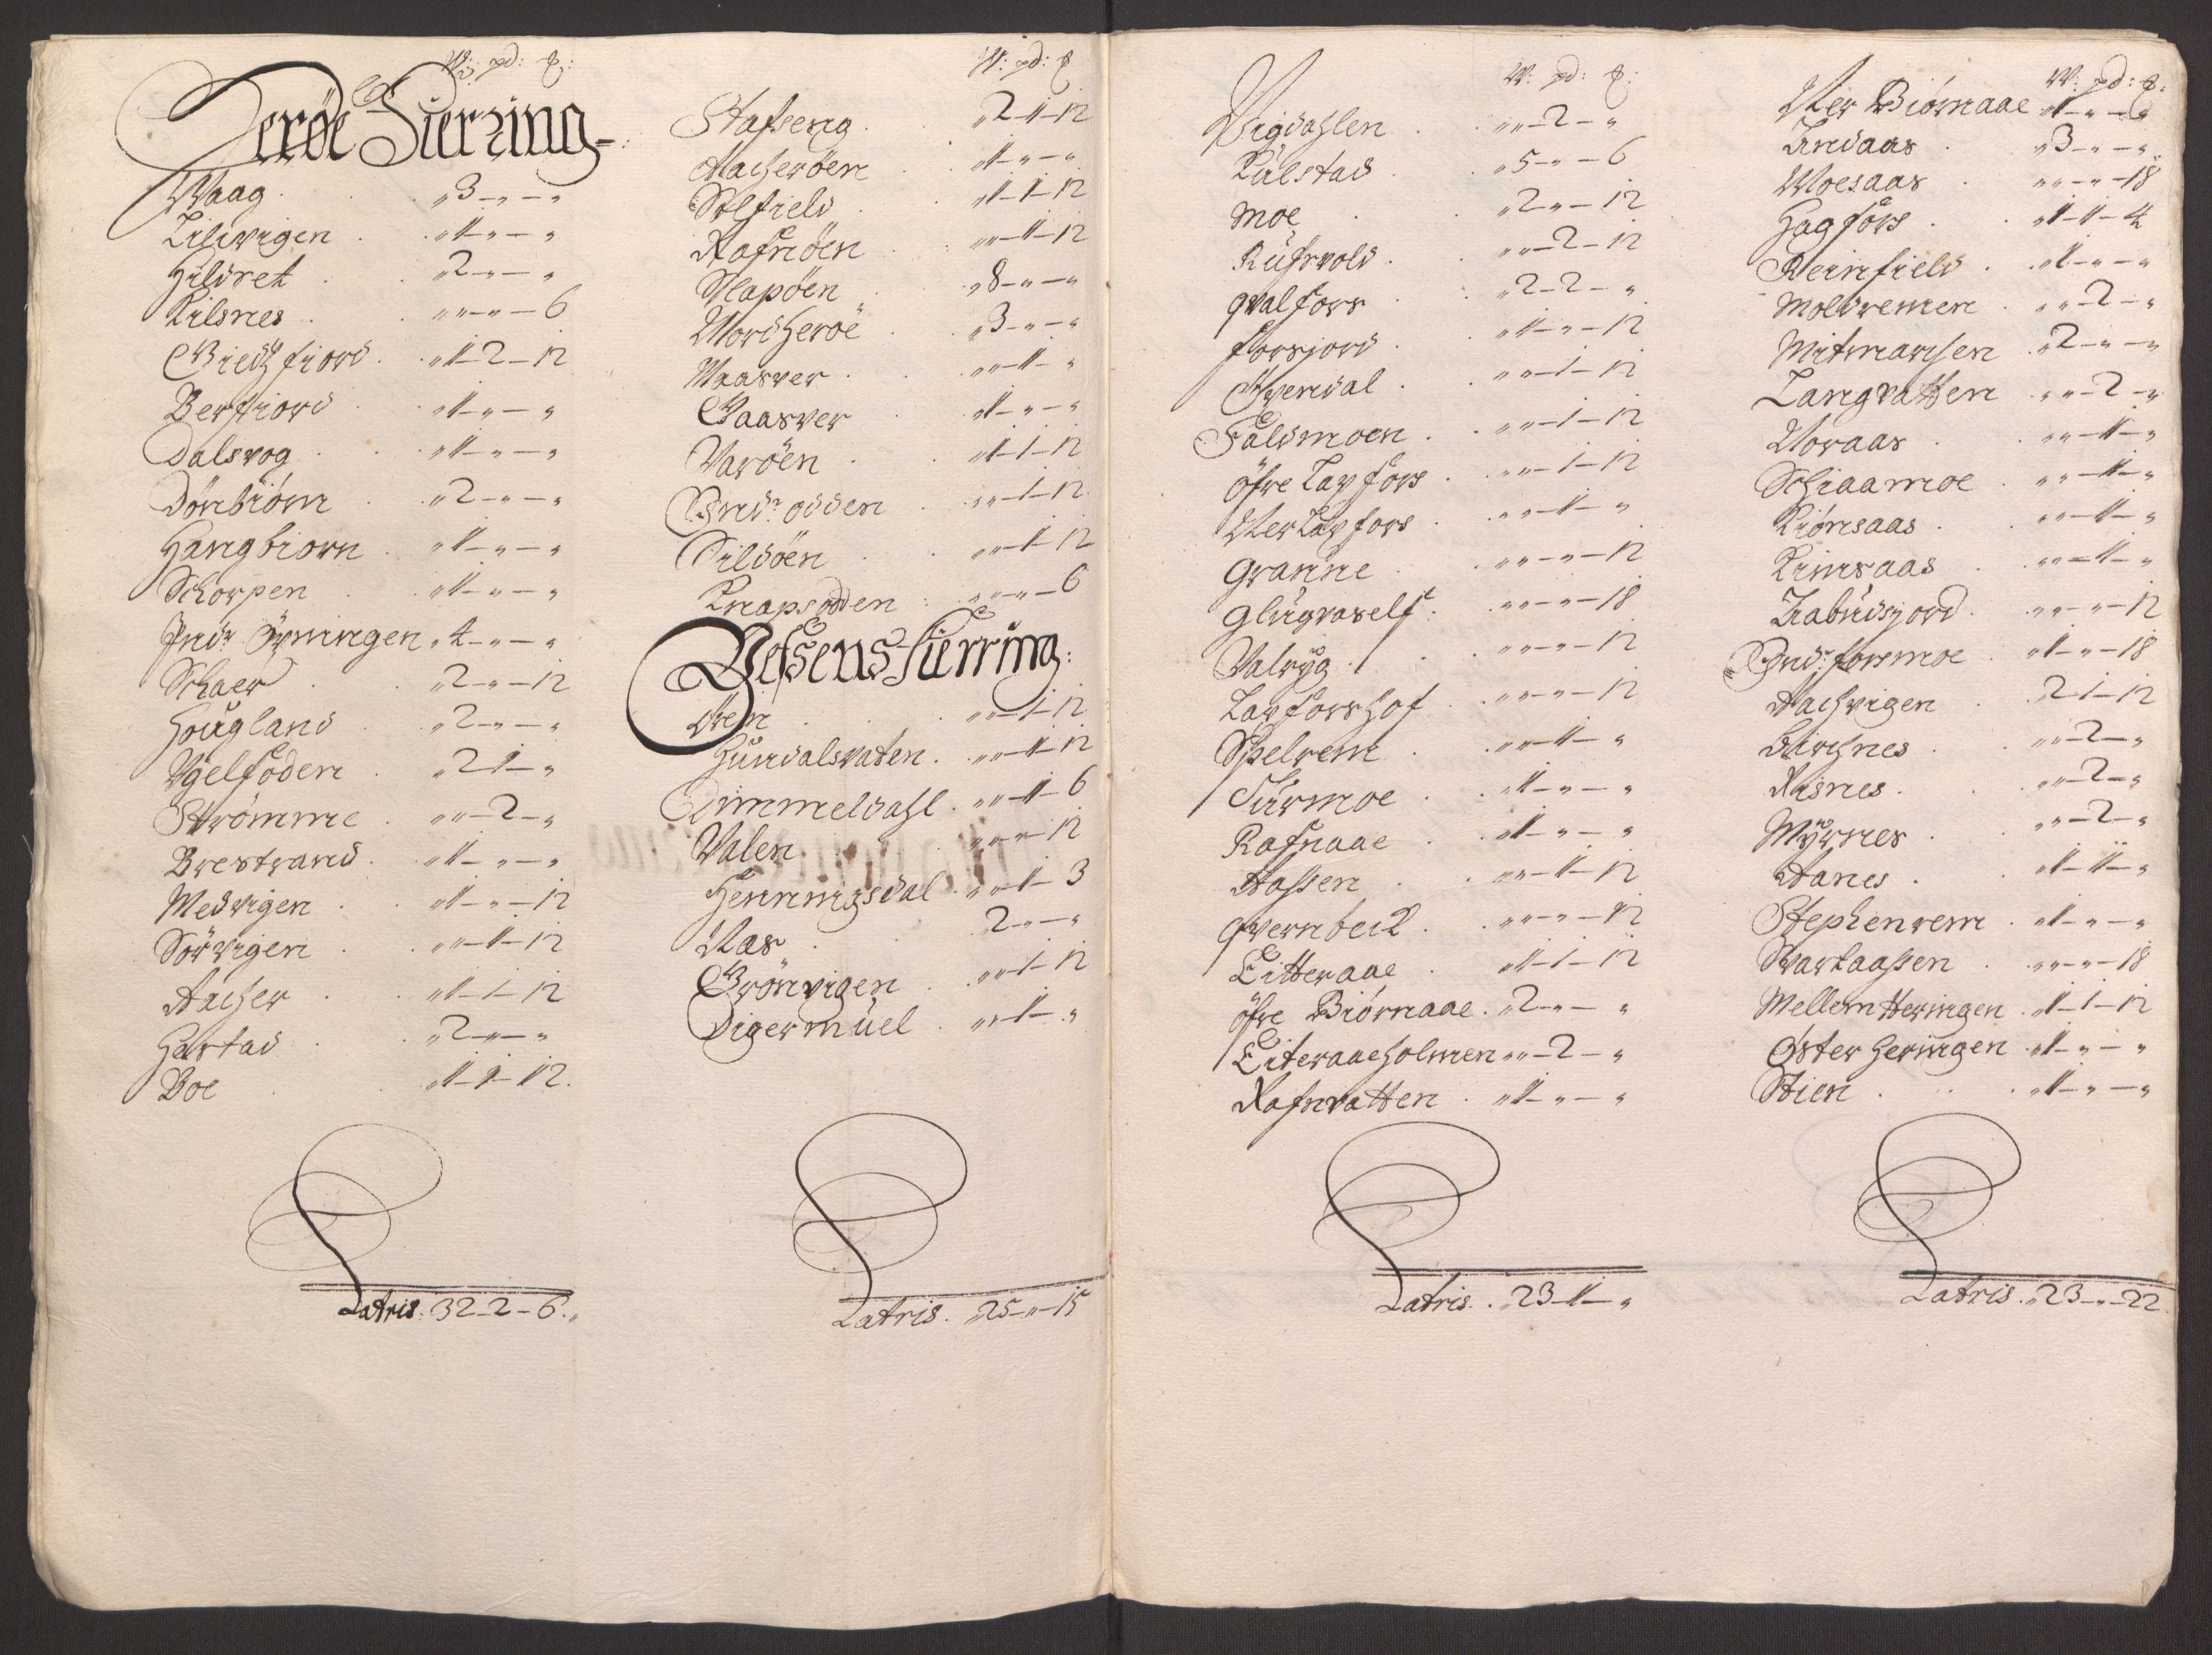 W: pd: ℔:
Herøe Fierring
Waag „ 3 - „ - „
Lilivigen „ 1 - „ - „
Hildret „ 2 - „ - „
Kilsnes „ „ - „ - 6
Giedtzfiord „ 1 - 2 - 12
Berfiord „ 1 - „ - „
Dalsvog „ 1 - „ - „
Dönbiörn „ 2 - „ - „
Hangbiorn „ 1 - „ - „
Schorpen „ 1 - „ - „
Indr Öyningen „ 4 - „ - „
Schaer „ 2 - „ - 12
Hougland „ 2 - „ - „
Ugelfoden „ 2 - 1 - „
Strömme „ „ - 2 - „
Brestrand „ 1 - „ - „
Medvigen „ 1 - „ - 12
Sörvigen „ „ - 1 - 12
Aacher „ 1 - 1 - 12
Hestad „ 2 - „ - „
Boe „ 1 - 1 - 12
Latris 32 - 2 - 6
W: pd: ℔
Stafseng „ 2 - 1 - 12
Aacheröen „ 1 - „ - „
Solfield „ 1 - 1 - 12
Rafnöen „ „ - 1 - 12
Slapöen „ 8 - „ - „
Nordherøe „ 3 - „ - „
Maasver „ „ - 1 - „
Gaasver „ 1 - „ - „
Varöen „ 1 - 1 - 12
Indr. odden „ „ - 1 - 12
Sildöen „ „ - 1 - 12
Knapsodden „ „ - „ - 6
Vefsens Fierring:
Rem „ „ - 1 - 12
Hundalsvaten „ „ - 1 - 12
Dimmeldahl „ „ - 1 - 6
Valen „ „ - „ - 12
Henningsdal „ „ - 1 - 3
Nas 2 - „ - „
Grönvigen „ „ - 1 - 12
Digermuel „ „ - 1 - „
Latris „ 25 - „ - 15
W: pd: ℔:
Vigdahlen „ „ - 2 - „
Kulstad „ 5 - „ - 6
Moe „ 2 - „ - 12
Kufsvold „ „ - 2 - 12
Qvalfors „ 2 - 2 - „
Forsjord „ 1 - „ - 12
Svendal „ „ - 1 - 12
Faldmoen „ „ - 1 - 12
Öfre Laxfors „ „ - 1 - 12
Ner Laxfors „ „ - 1 - „
Granne „ „ - „ - 12
Glugvaself „ „ - „ - 18
Valryg „ „ - „ - 12
Laxforshof „ „ - „ - 12
Spelrem „ „ - 1 - „
Turmoe „ 1 - „ - „
Rafnaae „ 1 - „ - „
Hassen „ „ - 1 - 12
Qvernbek „ „ - „ - 12
Eitteraae „ 1 - 1 - 12
Öfre Biörnaae „ 2 - „ - „
Eiteraaeholmen „ „ - 2 - „
Rafnvatten „ 1 - „ - „
Latris „ 23 - 1 - „
W: pd: ℔:
Ner Biörnaae „ 1 - „ - „
Lindaas „ 3 - „ - „
Moesaas „ „ - „ - 18
Hagfors „ 1 - 1 - 4
Reinfield „ 1 - „ - „
Moldremen „ „ - 2 - „
Mitmarchen „ 2 - „ - „
Langvatten „ „ - 2 - „
Noraas „ „ - 1 - „
Schiaamoe „ „ - 1 - „
Kiönsaas „ „ - 1 - „
Kimsaas „ „ - 1 - „
Trabudsjord „ „ - „ - 12
Indr. forsmoe „ 1 - „ - 18
Aachvigen 2 - 1 - 12
Birchnes „ „ - 2 - „
Risnes „ „ - 2 - „
Myrnes „ „ - 2 - „
Hanes „ 1 - 1 - „
Stephenrem „ 1 - „ - „
Svartaassen „ „ - „ - 18
Mellem Heringen „ 1 - 1 - 12
Öster Heringen „ 1 - „ - „
Stien „ 1 - „ - „
Latris „ 23 - „ - 22